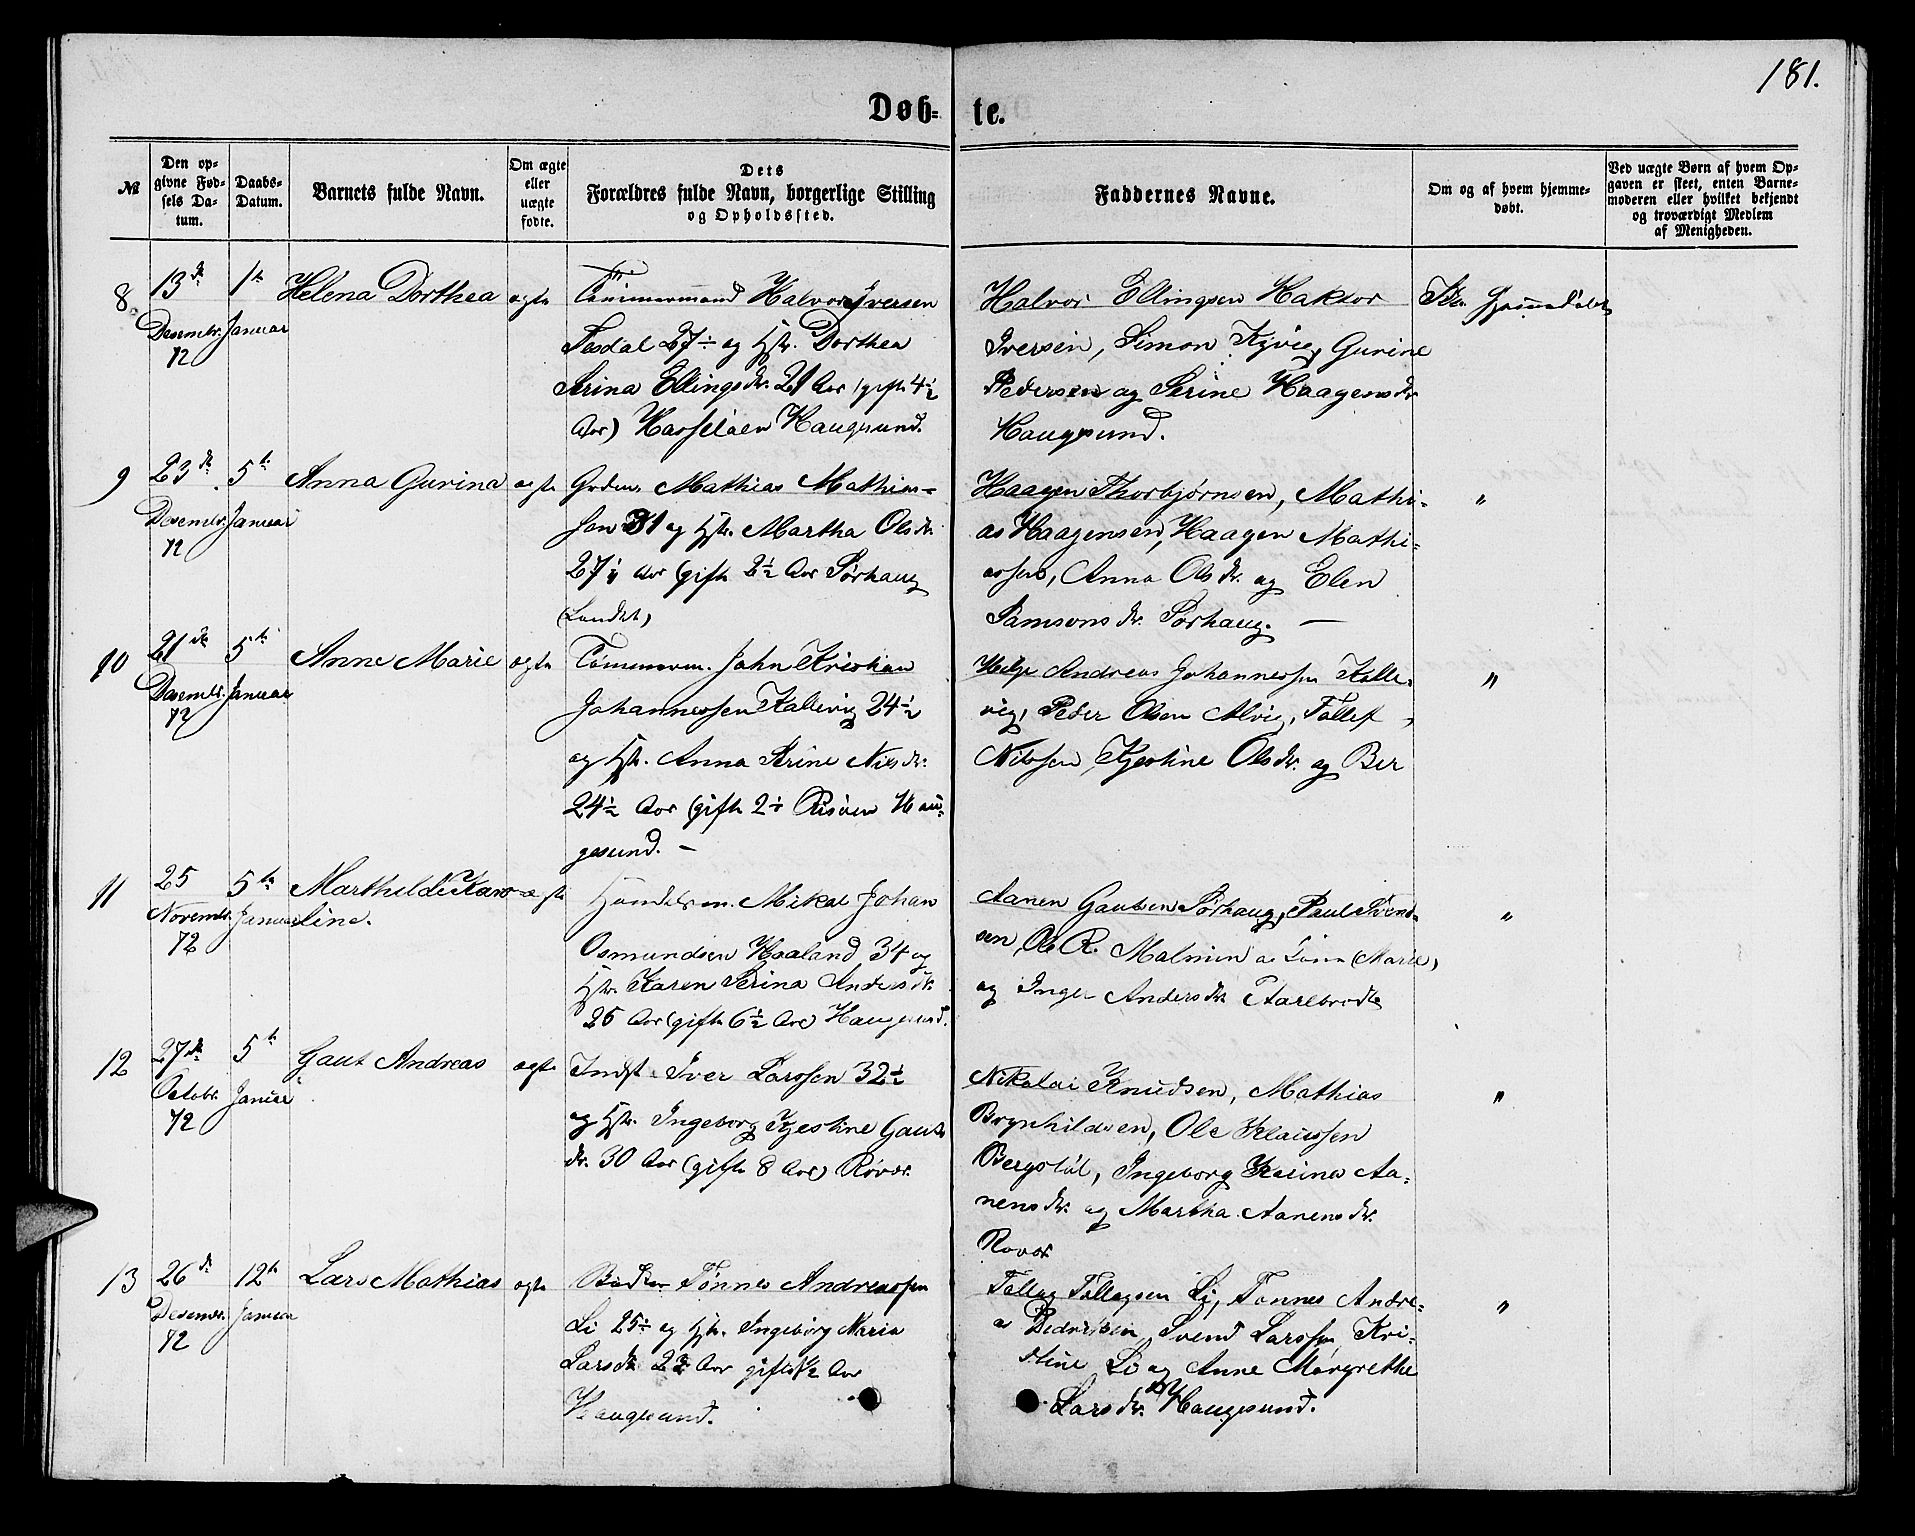 181.
Døb- te.
№
Den op-
givne Fød-
sels Da-
tum.
Daabs-
Datum.
Barnets fulde Navn.
Om ægte
eller
uægte
fødte.
Dets
Forældres fulde Navn, borgerlige Stilling
og Opholdssted.
Faddernes Navne.
Om og af hvem hjemme-
døbt.
Ved uægte Børn af hvem Op-
gaven er skeet, enten Barne-
moderen eller hvilket bekjendt
og troværdigt Medlem
af Menigheden.
8.
13de
Desembr.
72
1te
Januar
Helena Dorthea
ægte
Tømmermand Halvor Iversen
Sesdal 27½ og Hstr. Dorthea
Serina Ellingsdr. 21 Aar (gifte 4½
Aar) Hasseløen Haugesund.
Halvor Ellingsen Haktor
Iversen, Simon Kyvig, Gurine
Pedersen og Serine Haagensdr.
Haugesund.
Hjemmedøbt
9
23de
Desembr.
72
5te
Januar
Anna Gurina
ægte
Grdm. Mathias Mathias-
sen 31 og Hstr. Martha Olsdr.
27½ Aar (gifte 2½ Aar Sørhaug
(Landet)
Haagen Thorbjørnsen, Mathi-
as Haagensen, Haagen Mathi-
assen, Anna Olsdr. og Elen
Samsonsdr. Sørhaug. —
"
10
21de
Desembr.
72
5te
Januar
Anne Marie
ægte
Tømmerm. John Kristian
Johannessen Kallevig 24½
og Hstr. Anna Serine Nilsdr.
24½ Aar (gifte 2½ Risøen Hau-
gesund. —
Helje Andreas Johannessen Kalle-
vig, Peder Olsen Alvig, Tollef
Nilssen, Kjestine Olsdr. og Ber
"
11
25
Novembr.
72
5te
Januar
Marthilde Karo-
line.
ægte
Handelsm. Mikal Johan
Osmundsen Haaland 34 og
Hstr. Karen Serina Andersdr.
25 Aar (gifte 6½ Aar) Haugesund.
Aanen Gautsen Sørhaug, Paul Svend-
sen, Ole R. Malmin (Marie)
og Inger Andersdr.
"
12
27de
Octobr.
72
5te
Januar
Gaut Andreas
ægte
Indst. Iver Larssen 32½
og Hstr. Ingeborg Kjestine Gauts
dr. 30 Aar (gifte 8 Aar) Røvær.
Nikolai Knudsen, Mathias
Brynhildsen, Ole Klaussen
Bergstøl, Ingeborg Aa-
nensdr. og Martha Aanensdr.
Rovær
"
13
26de
Desembr.
72
12te
Januar
Lars Mathias
ægte
Tønnes Andreassen
Li 25½ og Hstr. Ingeborg Maria
Larsdr. 22 Aar gifte ½ Aar
Haugesund.
Tolleg Tollagsen Li, Tønnes Andre-
as Pedersen, Svend Larssen Kri-
stine Li og Anne Margrethe
Larsdr. Haugesund.
"